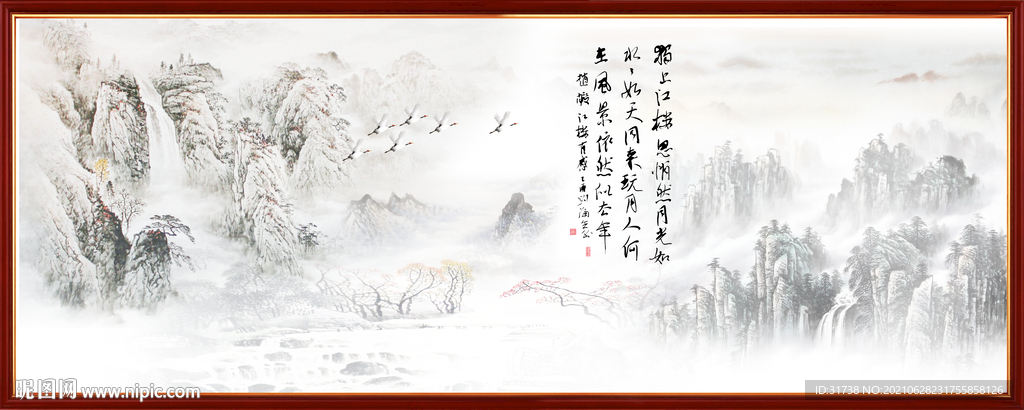 獨上江楼思悄然月光如
水〻如天同来玩月人何
在風景依然似去年
趙嘏江楼有感
昵图网 www.nipic.com
ID:31738 NO:20210628231755858126